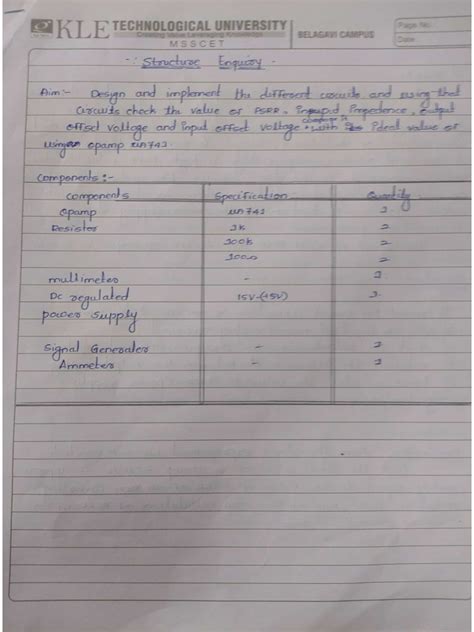 KLE TECHNOLOGICAL UNIVERSITY
Creating Value Leveraging Knowledge
MSSCET
BELAGAVI CAMPUS
Page No.
Date
Structure Enquiry
Aim:- Design and implement the different circuits and using that
circuits check the value of PSRR, Impedence, output
offset voltage and input offset voltage with Ideal value of
opamp μA741.
Components:-
Components Specification Quantity
Opamp μA741 1
Resistor 1k 2
100k 2
2
multimeter - 1
Dc regulated
power supply
Signal Generator -
Ammeter -